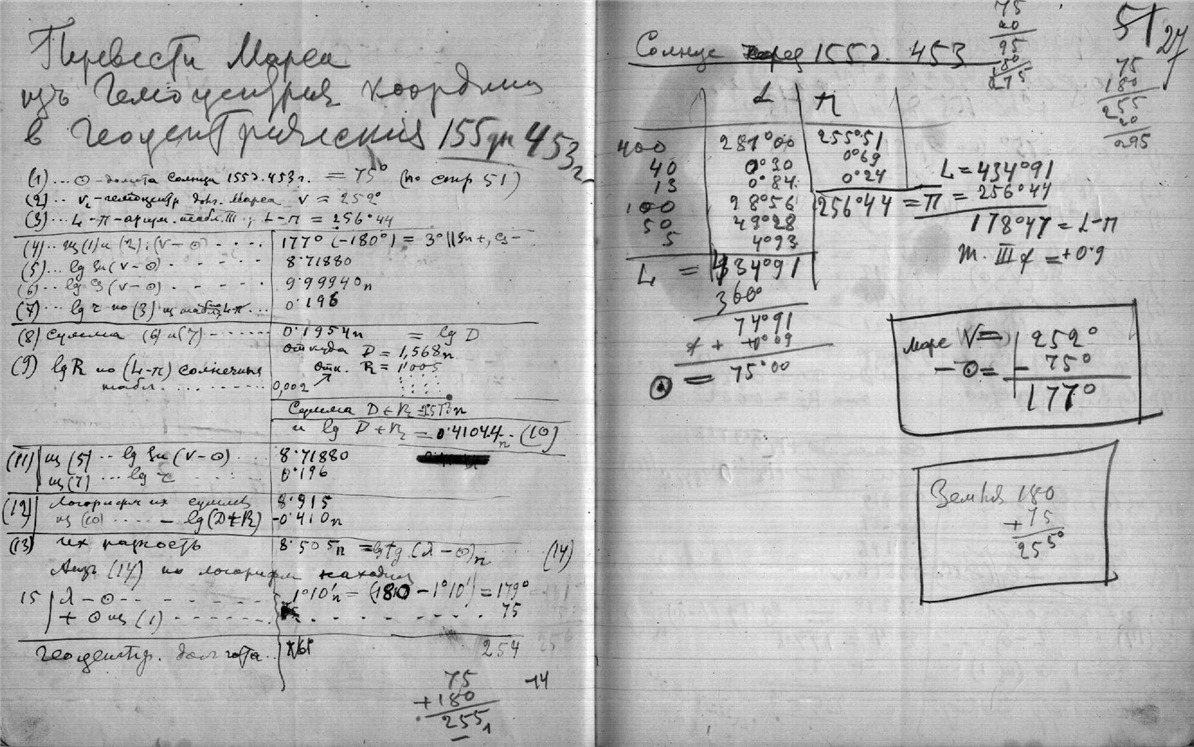 Перевести Марса
изъ Гелиоцентрич координ
в геоцентрический 155дн 453г.
(1)... ⊙-долгота солнца 155д. 453г. = 75° (по стр 51)
(2).. V-гелиоцентр долг. Марса V = 252°
(3).. L-π-аргум. табл. III; L-π = 256°44
(4).. из (1) и (2); (V-⊙) 177° (-180°) = 3°
(5)... lg Sn (V-⊙) 8.71880
(6).. lg Cs (V-⊙) 9.99940n
(7).. lg r по (3) из табл. 0.196
(8) Сумма (6) и (7) 0.1954n = lg D
откуда D = 1,568n
(9) lg R по (L-π) солнечных отк. R = 1.005
табл. 0,002
Сумма D+R
и lg D+R = 0.41044n (10)
(11) из (5) .. lg Sn (V-⊙) 8.71880
из (7) ... lg r 0.196
(12) Логарифм их суммы 8.915
из (10) ..... - lg (D+R) -0.410n
(13) их разность 8.505n = lg tg (λ-⊙)n (14)
А из (14) по логарифм находим
15 λ-⊙ 1°10'n = (180-1°10') = 179°
+ ⊙ из (1) 75
геоцентр. долгота 254
75 -14
+180
255
51
27
75
20
95
180
275
75
180
255
20
295
Солнце 155д. 453
L π
400 281°00 255°51
40 0°30 0°69
13 0°84 0°24
100 28°56 256°44 = π
50 49°28
5 4°93
L = 434°91
360°
74°91
+ +0°09
⊙ = 75°00
L = 434°91
π = 256°44
178°47 = L-π
т. III = +0.9
марс V = 252°
- ⊙ = - 75°
177°
Земля 180
+ 75
255°